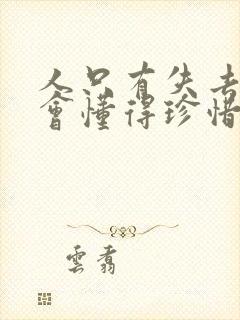 人只有失去
會懂得珍惜
雲翥